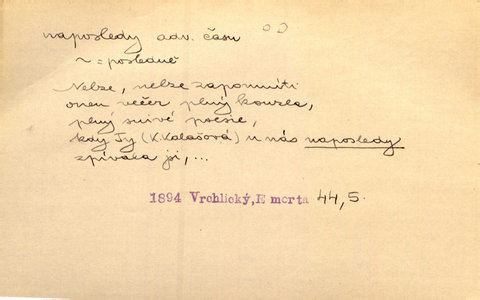 naposledy adv. času
~ = posledně
Nelze, nelze zapomníti
onen večer plný kouzla,
plný snivé poesie,
kdy Ty (K. Kalašová) u nás naposledy
zpívala ji, ...
1894 Vrchlický, E morta 44, 5.